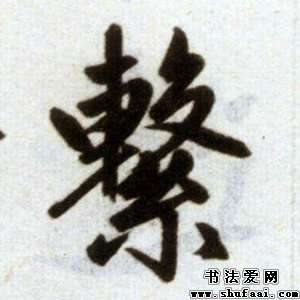 繫
书法爱网
www.shufaai.com